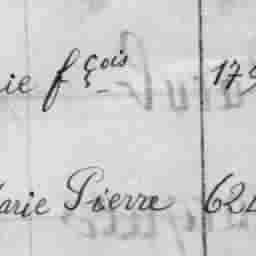 ie fçois 179
arie Pierre 624